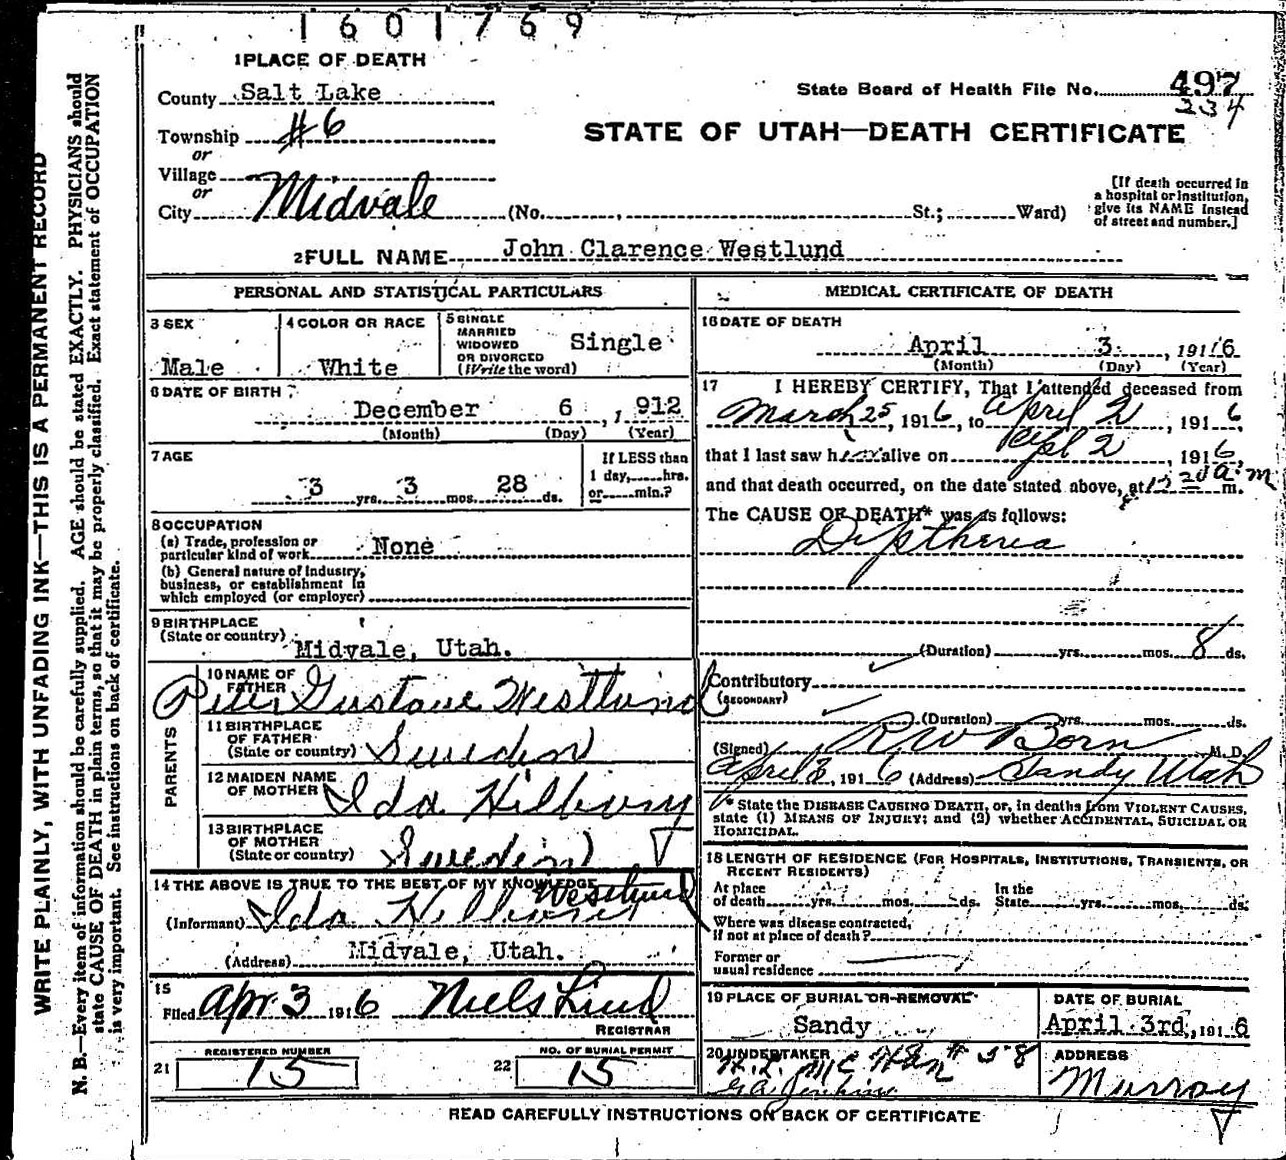 1601769
1 PLACE OF DEATH
County Salt Lake
State Board of Health File No. 497
234
Township #6
or
STATE OF UTAH—DEATH CERTIFICATE
Village
or
City Midvale (No. , St.; Ward)
[If death occurred in a hospital or institution, give its NAME instead of street and number.]
2 FULL NAME John Clarence Westlund
PERSONAL AND STATISTICAL PARTICULARS
3 SEX
Male
4 COLOR OR RACE
White
5 SINGLE MARRIED WIDOWED OR DIVORCED (Write the word)
Single
6 DATE OF BIRTH
December 6, 1912
(Month) (Day) (Year)
7 AGE
3 yrs. 3 mos. 28 ds.
If LESS than 1 day, hrs. or min.?
8 OCCUPATION
(a) Trade, profession or particular kind of work None
(b) General nature of Industry, business, or establishment in which employed (or employer)
9 BIRTHPLACE
(State or country) Midvale, Utah.
PARENTS
10 NAME OF FATHER Peter Gustave Westlund
11 BIRTHPLACE OF FATHER
(State or country) Sweden
12 MAIDEN NAME OF MOTHER Ida
13 BIRTHPLACE OF MOTHER
(State or country) Sweden
14 THE ABOVE IS TRUE TO THE BEST OF MY KNOWLEDGE
(Informant) Ida Westlund
(Address) Midvale, Utah.
15
Filed Apr 3 1916 Niels Lind
REGISTRAR
21 REGISTERED NUMBER
15
22 NO. OF BURIAL PERMIT
15
MEDICAL CERTIFICATE OF DEATH
16 DATE OF DEATH
April 3, 1916
(Month) (Day) (Year)
17 I HEREBY CERTIFY, That I attended deceased from
March 25, 1916, to April 2, 1916
that I last saw h alive on Apl 2, 1916,
and that death occurred, on the date stated above, at 12 20 a.m. m.
The CAUSE OF DEATH* was as follows:
Diptheria
(Duration) yrs. mos. 8 ds.
Contributory
(SECONDARY)
(Duration) yrs. mos. ds.
(Signed) R W Born M. D.
April 3, 1916 (Address) Sandy Utah
* State the DISEASE CAUSING DEATH, or, in deaths from VIOLENT CAUSES, state (1) MEANS OF INJURY; and (2) whether ACCIDENTAL, SUICIDAL OR HOMICIDAL.
18 LENGTH OF RESIDENCE (FOR HOSPITALS, INSTITUTIONS, TRANSIENTS, OR RECENT RESIDENTS)
At place of death yrs. mos. ds. In the State yrs. mos. ds.
Where was disease contracted, If not at place of death?
Former or usual residence
19 PLACE OF BURIAL OR REMOVAL
Sandy
DATE OF BURIAL
April 3rd, 1916
20 UNDERTAKER
G.A. Jenkins
ADDRESS
Murray
READ CAREFULLY INSTRUCTIONS ON BACK OF CERTIFICATE
WRITE PLAINLY, WITH UNFADING INK—THIS IS A PERMANENT RECORD
N. B.—Every item of information should be carefully supplied. AGE should be stated EXACTLY. PHYSICIANS should
state CAUSE OF DEATH in plain terms, so that it may be properly classified. Exact statement of OCCUPATION
is very important. See instructions on back of certificate.